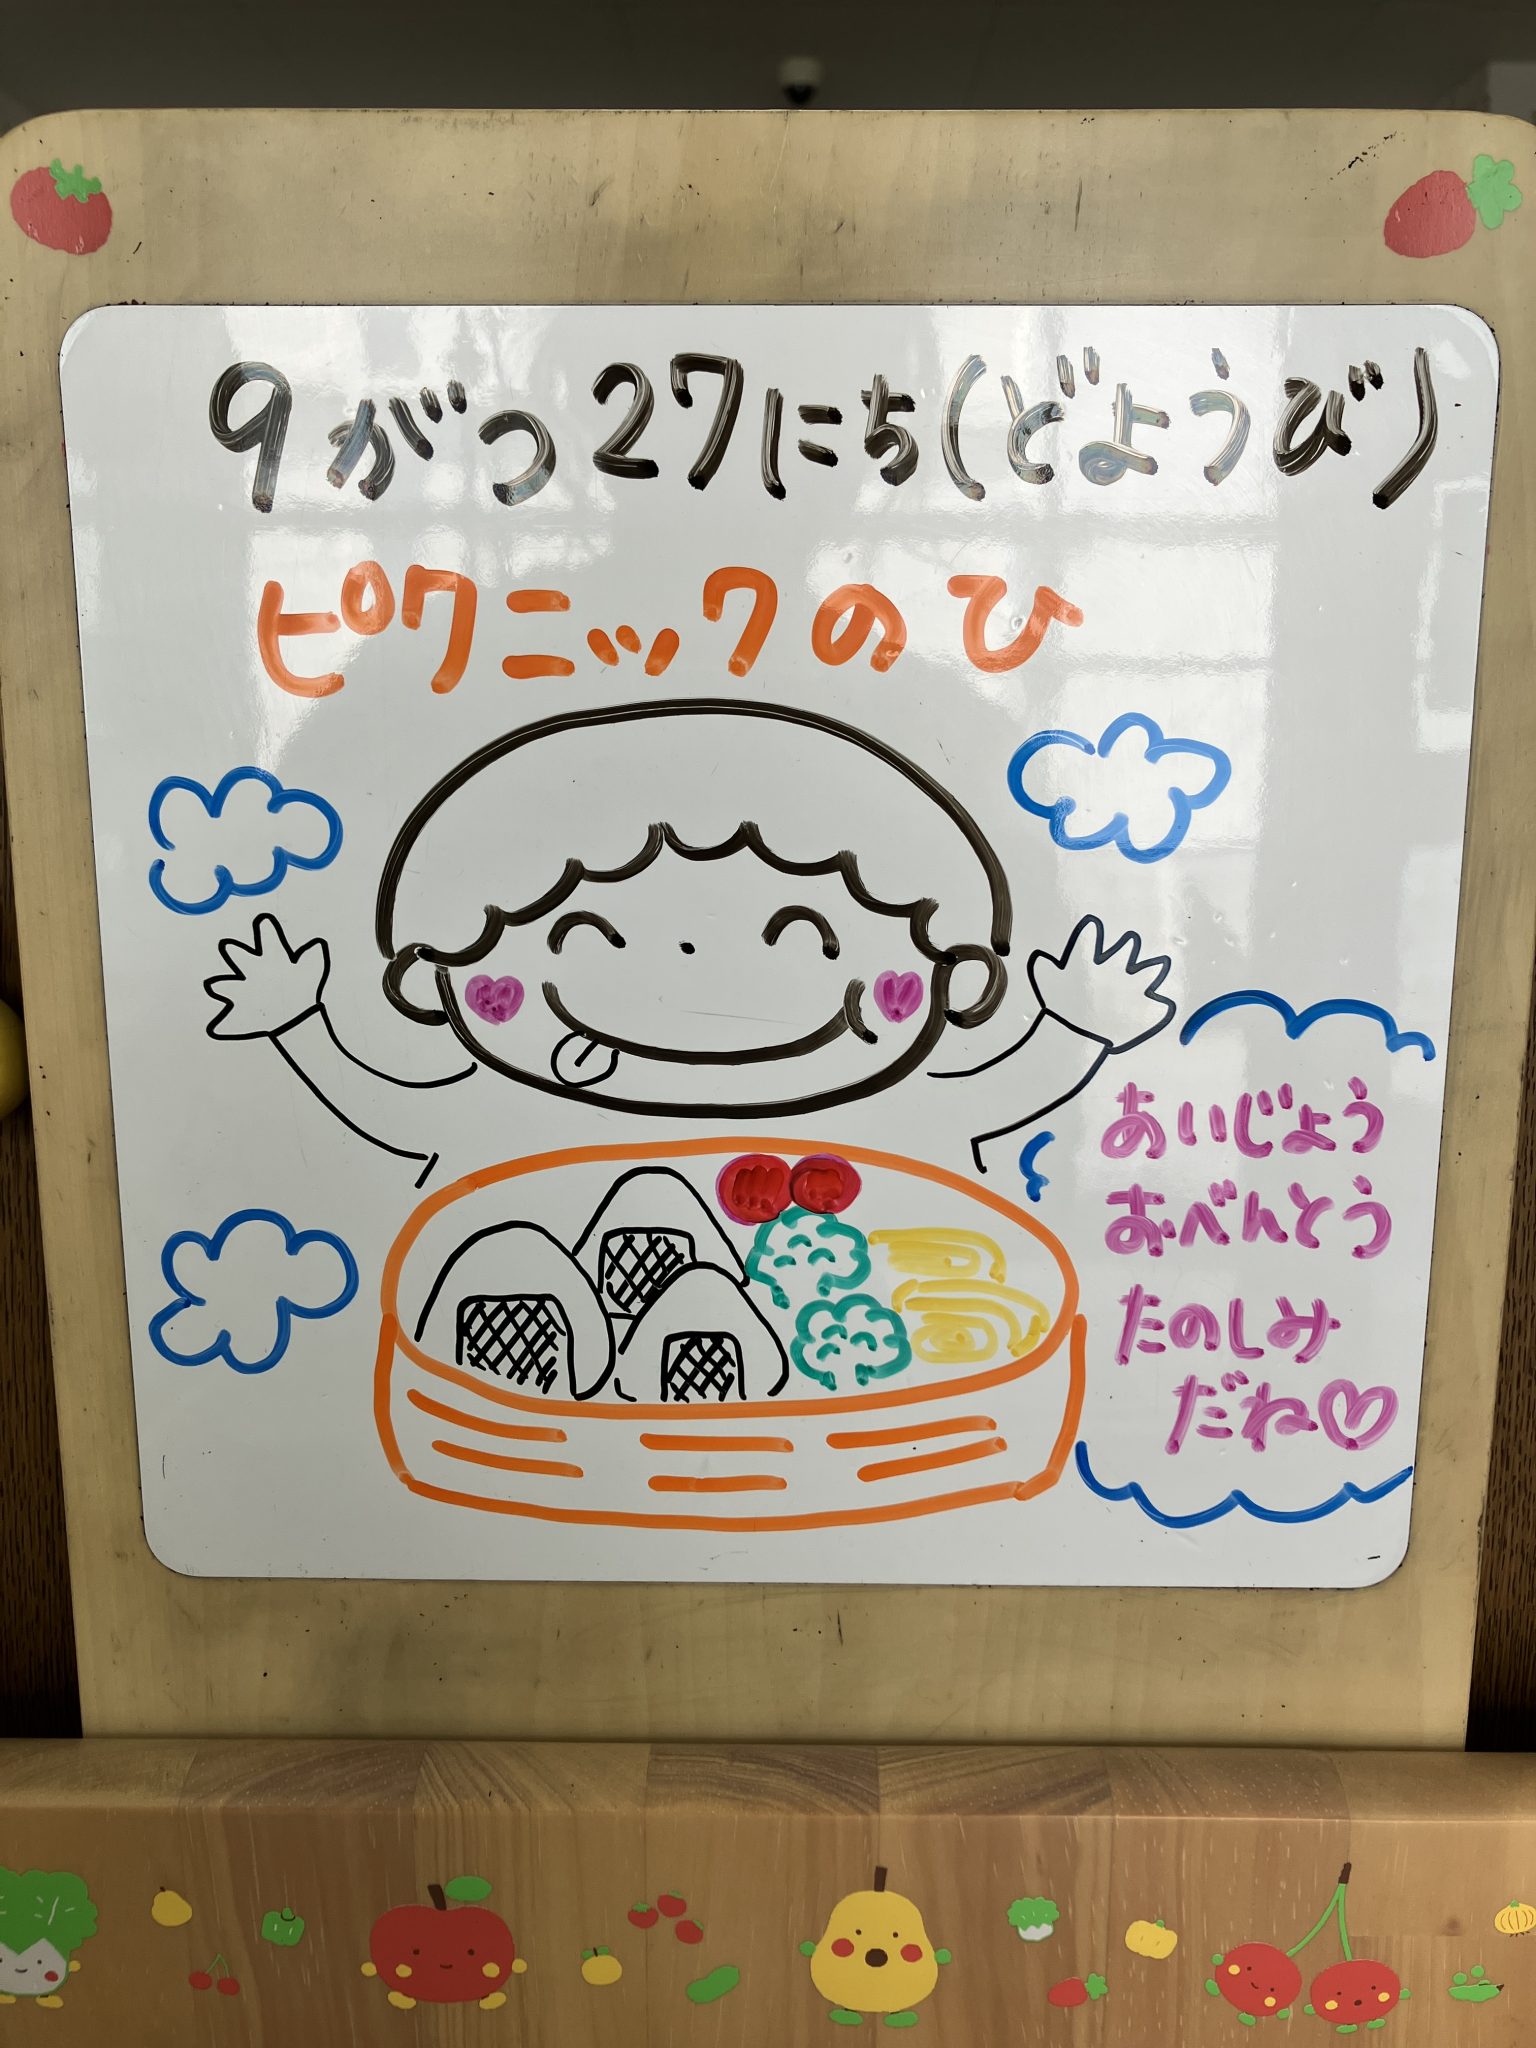 9がつ27にち(どようび)
ピクニックのひ
あいじょう
おべんとう
たのしみ
だね♡